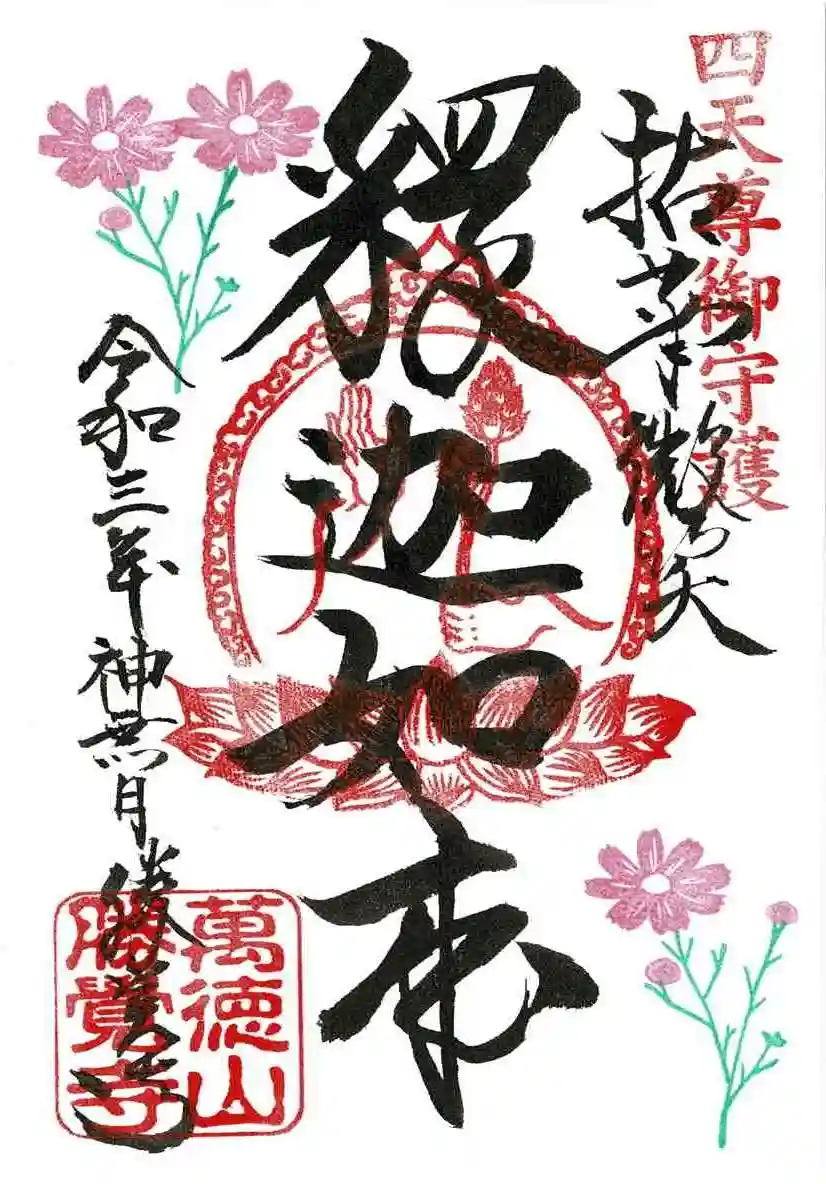 四天尊御守護
拈華微笑
釋迦如来
令和三年神無月勝覚寺
萬徳山
勝覺寺